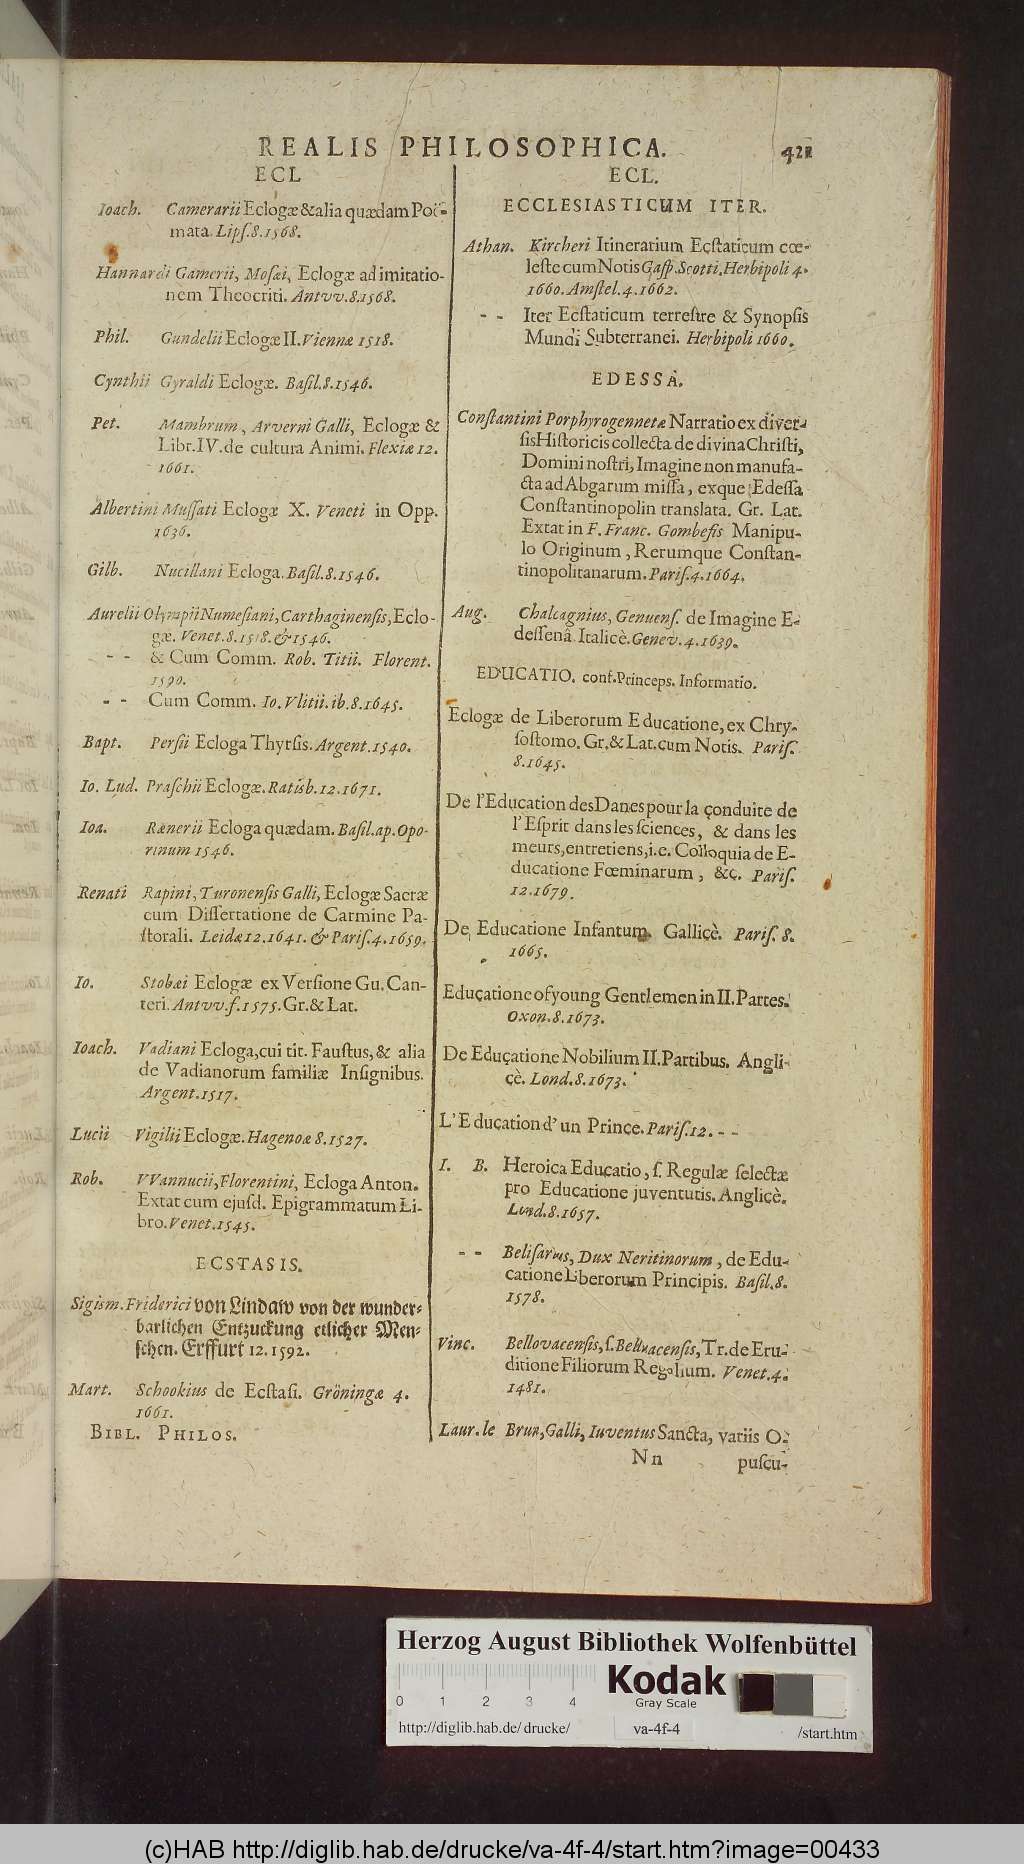 REALIS PHILOSOPHICA. 421
ECL
Ioach. Camerarii Eclogæ & alia quædam Poë-
mata. Lipſ. 8. 1568.
Hannardi Gamerii, Moſæi, Eclogæ ad imitatio-
nem Theocriti. Antvv. 8. 1568.
Phil. Gundelii Eclogæ II. Viennæ 1518.
Cynthii Gyraldi Eclogæ. Baſil. 8. 1546.
Pet. Mambrum, Arverni Galli, Eclogæ &
Libr. IV. de cultura Animi. Flexiæ 12.
1661.
Albertini Muſſati Eclogæ X. Veneti in Opp.
1636.
Gilb. Nucillani Ecloga. Baſil. 8. 1546.
Aurelii Olympii Numeſiani, Carthaginenſis, Eclo-
gæ. Venet. 8. 1518. & 1546.
- - & Cum Comm. Rob. Titii. Florent.
1590.
- - Cum Comm. Io. Vlitii. ib. 8. 1645.
Bapt. Perſii Ecloga Thyrſis. Argent. 1540.
Io. Lud. Praſchii Eclogæ. Ratisb. 12. 1671.
Ioa. Rænerii Ecloga quædam. Baſil. ap. Opo-
rinum 1546.
Renati Rapini, Turonenſis Galli, Eclogæ Sacræ
cum Diſſertatione de Carmine Pa-
ſtorali. Leidæ 12. 1641. & Pariſ. 4. 1659.
Io. Stobæi Eclogæ ex Verſione Gu. Can-
teri. Antvv. f. 1575. Gr. & Lat.
Ioach. Vadiani Ecloga, cui tit. Fauſtus, & alia
de Vadianorum familiæ Inſignibus.
Argent. 1517.
Lucii Vigilii Eclogæ. Hagenoæ 8. 1527.
Rob. VVannucii, Florentini, Ecloga Anton.
Extat cum ejuſd. Epigrammatum Li-
bro. Venet. 1545.
ECSTASIS.
Sigism. Friderici von Lindaw von der wunder-
barlichen Entzuckung etlicher Men-
ſchen. Erffurt 12. 1592.
Mart. Schookius de Ecſtaſi. Gröningæ 4.
1661.
BIBL. PHILOS.
ECL.
ECCLESIASTICUM ITER.
Athan. Kircheri Itinerarium Ecſtaticum cœ-
leſte cum Notis Gaſp. Scotti. Herbipoli 4.
1660. Amſtel. 4. 1662.
- - Iter Ecſtaticum terreſtre & Synopſis
Mundi Subterranei. Herbipoli 1660.
EDESSA.
Conſtantini Porphyrogennetæ Narratio ex diver-
ſis Hiſtoricis collecta de divina Chriſti,
Domini noſtri, Imagine non manufa-
cta ad Abgarum miſſa, exque Edeſſa
Conſtantinopolin translata. Gr. Lat.
Extat in F. Franc. Gombefis Manipu-
lo Originum, Rerumque Conſtan-
tinopolitanarum. Pariſ. 4. 1664.
Aug. Chalcagnius, Genuenſ. de Imagine E-
deſſenâ. Italicè. Genev. 4. 1639.
EDUCATIO. conf. Princeps. Informatio.
Eclogæ de Liberorum Educatione, ex Chry-
ſoſtomo. Gr. & Lat. cum Notis. Pariſ.
8. 1645.
De l'Education des Danes pour la conduite de
l'Esprit dans les ſciences, & dans les
meurs, entretiens, i.e. Colloquia de E-
ducatione Fœminarum, &c. Pariſ.
12. 1679.
De Educatione Infantum. Gallicè. Pariſ. 8.
1665.
Educatione of young Gentlemen in II. Partes.
Oxon. 8. 1673.
De Educatione Nobilium II. Partibus. Angli-
cè. Lond. 8. 1673.
L'Education d'un Prince. Pariſ. 12. - -
I. B. Heroica Educatio, ſ. Regulæ ſelectæ
pro Educatione juventutis. Anglicè.
Lond. 8. 1657.
- - Beliſarius, Dux Neritinorum, de Edu-
catione Liberorum Principis. Baſil. 8.
1578.
Vinc. Bellovacenſis, ſ. Belluacenſis, Tr. de Eru-
ditione Filiorum Regalium. Venet. 4.
1481.
Laur. le Brun, Galli, Iuventus Sancta, variis O-
Nn puſcu-
Herzog August Bibliothek Wolfenbüttel
0 1 2 3 4
Kodak
Gray Scale
http://diglib.hab.de/drucke/ va-4f-4 /start.htm
(c)HAB http://diglib.hab.de/drucke/va-4f-4/start.htm?image=00433